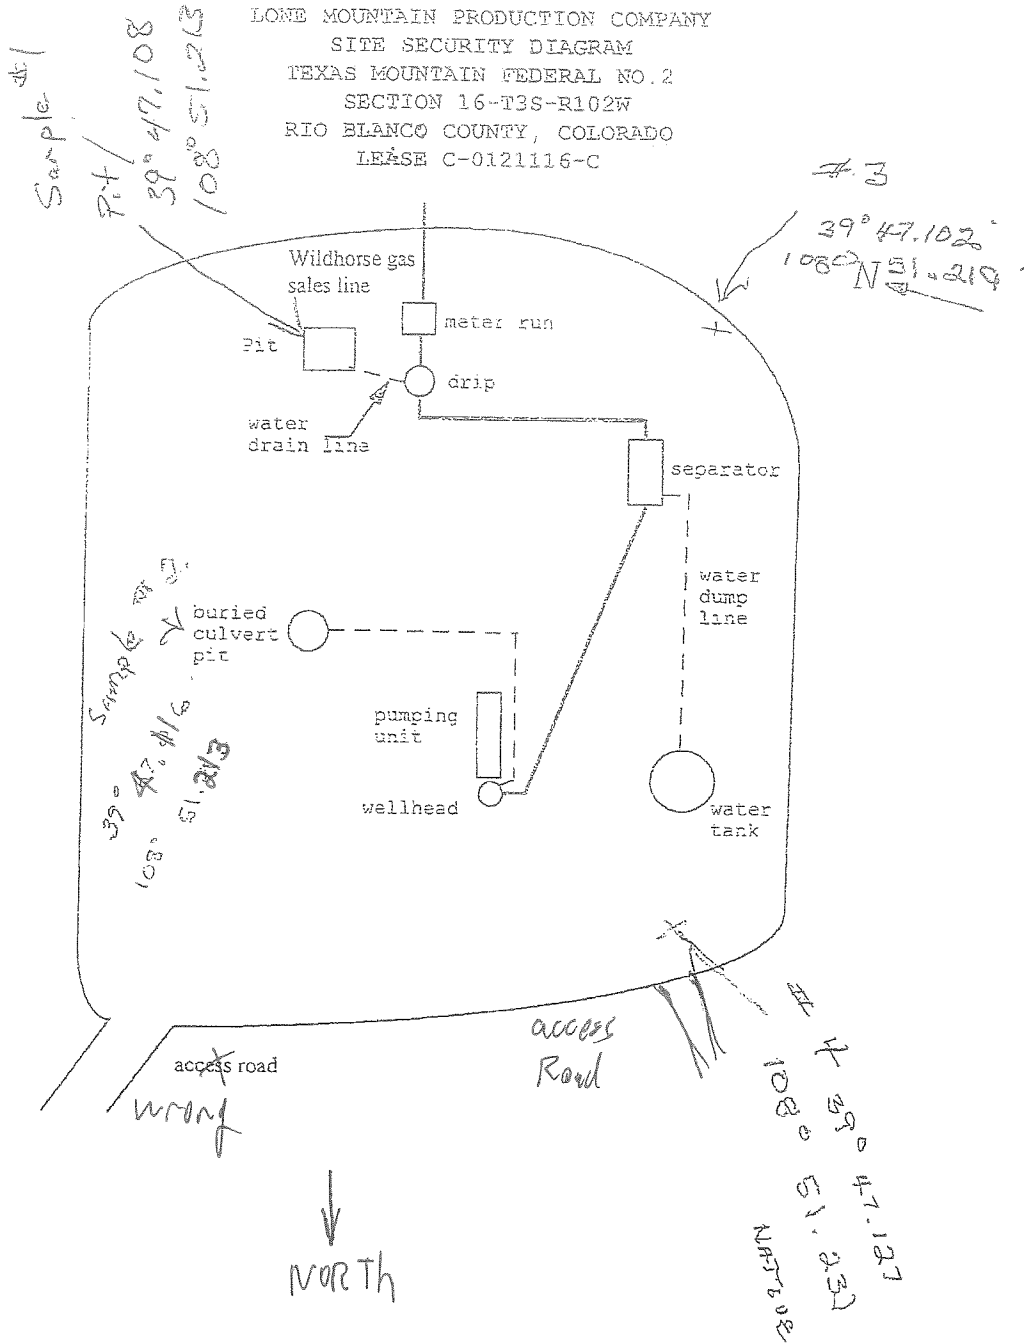 LONE MOUNTAIN PRODUCTION COMPANY
SITE SECURITY DIAGRAM
TEXAS MOUNTAIN FEDERAL NO.2
SECTION 16-T3S-R102W
RIO BLANCO COUNTY, COLORADO
LEASE C-0121116-C
Sample #1
Pit
39° 47.108
108° 51.213
#3
39° 47.102
108° N 51.219
Wildhorse gas
sales line
meter run
Pit
drip
water
drain line
separator
water
dump
line
Sample
buried
culvert
pit
39° 47.116
108° 51.213
pumping
unit
wellhead
water
tank
access road
wrong
access
Road
# 4 39° 47.127
108° 51.232
NATIVE
NORTH